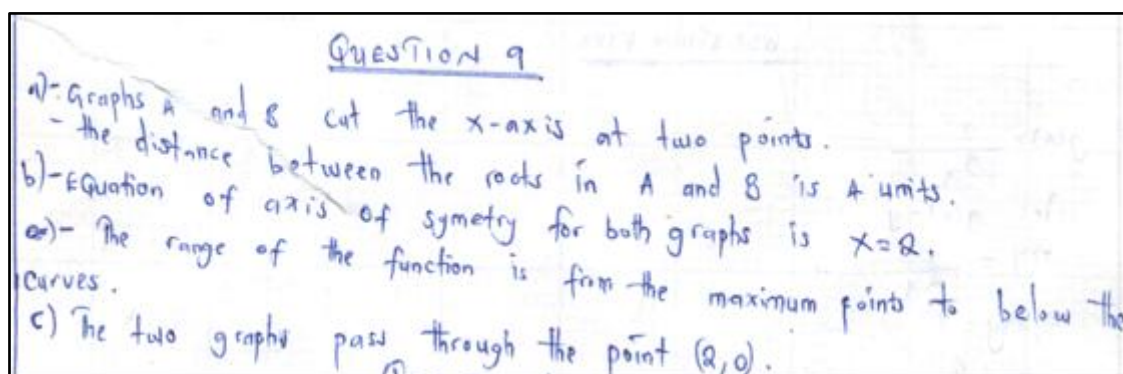 QUESTION 9
a)-: Graphs A and B cut the x-axis at two points.
- the distance between the roots in A and B is 4 units.
b)- EQuation of axis of symetry for both graphs is x=2.
- The range of the function is from the maximum points to below the
curves.
c) The two graphs pass through the point (2,0).